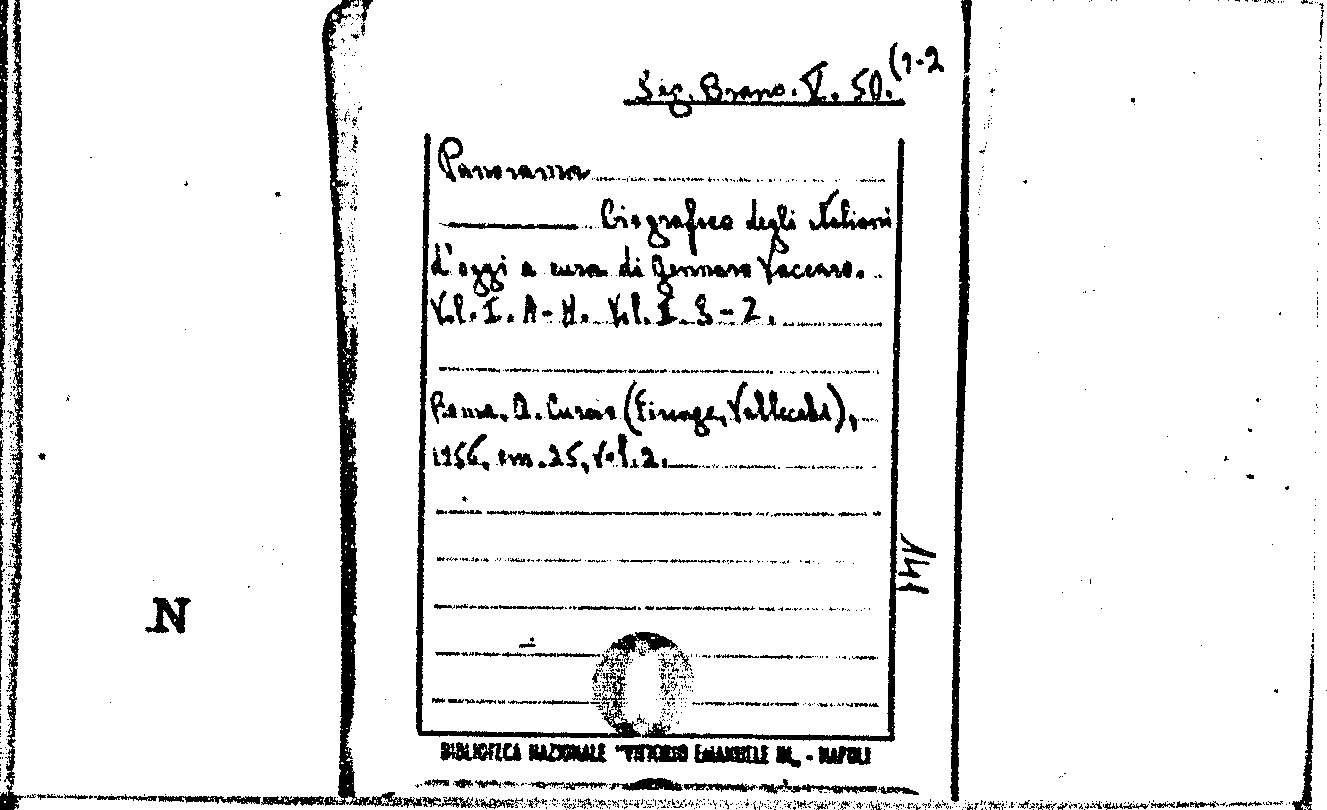 Sig. Branc. V. 50. (1-2
Panorama
Biografico degli italiani
d'oggi a cura di Gennaro Vaccaro.
Vol. I. A-H. Vol. II.
Roma. A. Curcio (Firenze, Vallecchi),
1956, cm. 25, Vol. 2.
144
N
BIBLIOTECA NAZIONALE "VITTORIO EMANUELE III„ - NAPOLI